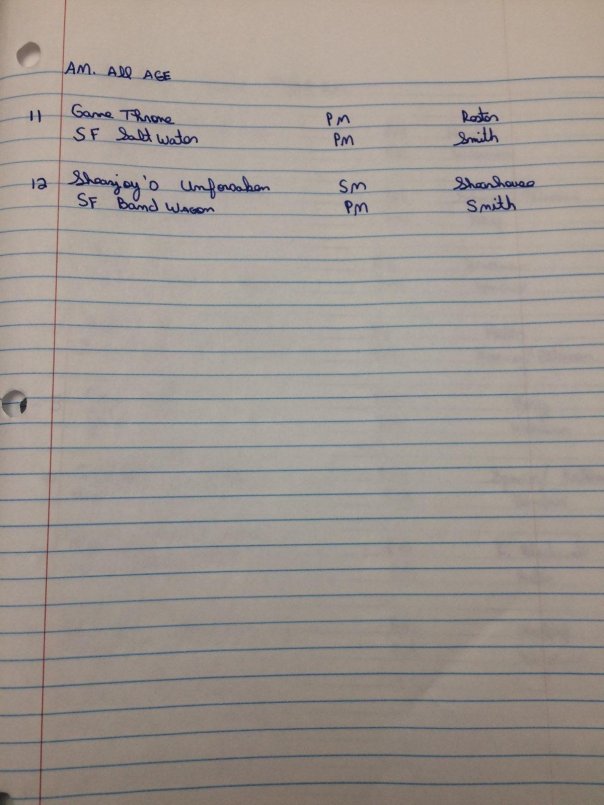 AM. All AGE
11 Game Throne PM
SF Salt Water PM Smith
12 SM
SF Band Wagon PM Smith